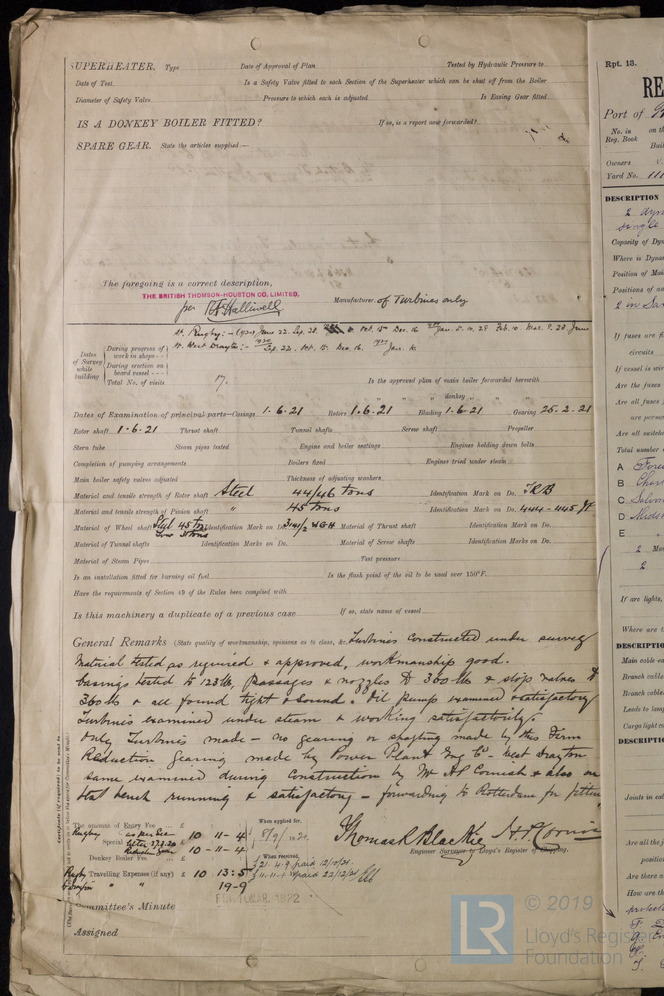 SUPERHEATER. Type Date of Approval of Plan Tested by Hydraulic Pressure to
Date of Test Is a Safety Valve fitted to each Section of the Superheater which can be shut off from the Boiler
Diameter of Safety Valve Pressure to which each is adjusted Is Easing Gear fitted
IS A DONKEY BOILER FITTED? If so, is a report now forwarded?
SPARE GEAR. State the articles supplied:—
The foregoing is a correct description,
THE BRITISH THOMSON-HOUSTON CO, LIMITED.
per Halliwell Manufacturer. of Turbines only
Dates of Survey while building
During progress of work in shops - -
At Rugby:- 1920 June 22. Sep. 28. Oct. 15. Dec. 16. 1921 Jan. 5. 10. 28 Feb. 10. Mar. 9. 23. June
During erection on board vessel - - -
At West Drayton:- 1920 Sep. 22. Oct. 15. Dec. 16. 1921 Jan. 10.
Total No. of visits 17. Is the approved plan of main boiler forwarded herewith
" " " donkey " " "
Dates of Examination of principal parts—Casings 1.6.21 Rotors 1.6.21 Blading 1.6.21 Gearing 25.2.21
Rotor shaft 1.6.21 Thrust shaft Tunnel shafts Screw shaft Propeller
Stern tube Steam pipes tested Engine and boiler seatings Engines holding down bolts
Completion of pumping arrangements Boilers fixed Engines tried under steam
Main boiler safety valves adjusted Thickness of adjusting washers
Material and tensile strength of Rotor shaft Steel 44/46 tons Identification Mark on Do. TRB
Material and tensile strength of Pinion shaft " 45 tons Identification Mark on Do. 444-445
Material of Wheel shaft Steel 45 tons Identification Mark on Do. Material of Thrust shaft Identification Mark on Do.
31 tons
Material of Tunnel shafts Identification Marks on Do. Material of Screw shafts Identification Marks on Do.
Material of Steam Pipes Test pressure
Is an installation fitted for burning oil fuel Is the flash point of the oil to be used over 150°F.
Have the requirements of Section 49 of the Rules been complied with
Is this machinery a duplicate of a previous case If so, state name of vessel
General Remarks (State quality of workmanship, opinions as to class, &c. Turbines constructed under survey
Material tested as required & approved, workmanship good.
Casings tested to 123 lbs, passages & nozzles to 360 lbs & stop valves to
360 lbs & all found tight & sound. Oil pump examined & satisfactory
Turbines examined under steam & working satisfactorily.
Only Turbines made - no gearing or shafting made by this Firm
Reduction Gearing made by Power Plant Eng Co. West Drayton
same examined during construction by Mr A P Cornish & also on
test bench running & satisfactory - forwarding to Rotterdam for fitting
The amount of Entry Fee ... £ When applied for,
Rugby Special 10 11 - 4 8/9/20
Reduction Gear 10 - 11 - 4
Donkey Boiler Fee ... £ When received,
Rugby Travelling Expenses (if any) £ 10 13:5
W Drayton " " 19-9
Thomas R Blackie A P Cornish
Engineer Surveyor to Lloyd's Register of Shipping.
Committee's Minute
Assigned
Rpt. 13.
RE
Port of
No. in Reg. Book
on the
Owners
Yard No. 111
DESCRIPTION
2
single
Capacity of Dy
Where is Dynam
Position of Mai
Positions of au
If fuses are f
circuits
If vessel is wir
Are the fuses
Are all fuses
are perma
Are all switche
Total number
A
B
C
D
E
2
2
If are lights,
Where are t
DESCRIPTIO
Main cable ca
Branch cable
Branch cable
Leads to lamp
Cargo light ca
DESCRIPTIO
Joints in cab
Are all the j
position
Are there a
How are th
© 2019
LR
Lloyd's Register
Foundation